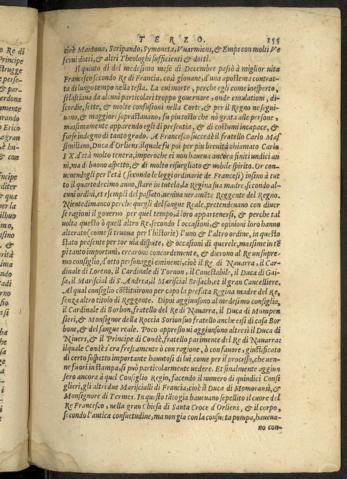 TERZO. 155
cioè Mantoua, Seripando, Symoneta, Vuarmiens, & Emps con molti Ve
scoui dotti, & altri Theologhi sufficienti & dotti.
Il quinto dì del medesimo mese di Decembre passò à miglior vita
Francesco secondo Re di Francia, così giouane, d'una apostema contrat-
ta di lungo tempo nella testa. La cui morte, perche egli come inesperto,
si lasciaua da alcuni particolari troppo gouernare, onde emulationi, di-
scordie, sette, & molte confusioni nella Corte, & per il Regno ne segui-
uano, & maggiori soprastauano, fu piu tosto che nò grata alle persone,
massimamente apparendo egli di presentia, & di costumi incapace, &
forse indegno di tanto grado. A Francesco successe il fratello Carlo Mas
similiano, Duca d'Orliens, il quale fu poi per piu breuità chiamato Carlo
IX. d'età molto tenera, imperoche ei non haueua ancora finiti undici an
ni, ma di buono aspetto, & di molto risuegliato & nobile spirito. Or con-
uenendogli per l'età (secondo le leggi ordinarie de Francesi) insino à tut
to il quartodecimo anno, stare in tutela, la Regina sua madre, secondo al-
cuni ordini, et essempli del passato, ueniua per usanza Reggente del Regno.
Niente dimanco perche quegli del sangue Reale, pretendeuano con diuer
se ragioni il gouerno per quel tempo, à loro appartenersi, & perche tal
uolta questo ò quell'altro Re, secondo l'occasioni, & opinioni loro hanno
alterato (come si truoua per l'historie) l'uno & l'altro ordine, in questo
stato presente per tor uia dispute, & occasioni di querele, massime in tē
pi tanto importanti, crearono concordemente, & diedero al Re un supre-
mo consiglio, d'otto personaggi eminenti, cioè il Re di Nauarra, il Car-
dinale di Loreno, il Cardinale di Tornon, il Conestabile, il Duca di Gui-
sa, il Marisciàl di S. Andrea, il Marisciàl Brisach, et il gran Cancelliere.
Al qual consiglio constituirono per capo la prefata Regina madre del Re,
senza altro titolo di Reggente. Dipoi aggiunsono al medesimo consiglio,
il Cardinale di Borbon, fratello del Re di Nauarra, il Duca di Mompen-
sieri, & Monsignore della Roccia Surion suo fratello anche essi di casa Bor
bone, & del sangue reale. Poco appresso ui aggiunsono altresì il Duca di
Niuers, & il Principe di Condè, fratello parimente del Re di Nauarra:
il quale Condè s'era frescamente ò con ragione, ò con fauore, giustificato
di certo sospetto importante hauutosi di lui, come per il processo, che uen-
ne fuori in stampa, si può particolarmente uedere. Et finalmente aggiun
sero ancora à quel Consiglio Regio, facendo il numero di quindici Consi
glieri, gli altri due Mariscialli di Francia, cioè il Duca di Momoransi, &
Monsignore di Termes. In questo tātogia haueuano sepellito il cuore del
Re Francesco, nella gran chiesa di Santa Croce d'Orliens, & il corpo,
secondo l'antica consuetudine, ma non gia con la consueta pompa, haueua-
no con-